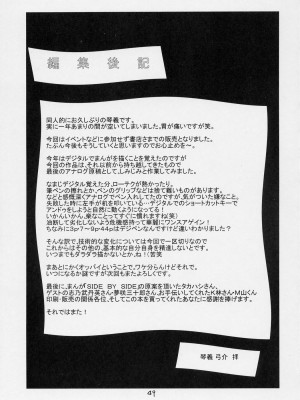 編集後記
同人的にお久しぶりの琴義です。
実に一年あまりの間が空いてしまいました、胃が痛いですが笑。
今回はイベントなどに参加せず書店さまでの販売となりました。
たぶん今後もそうしていくと思いますのでお心止めを～。
今年はデジタルでまんがを描くことを覚えたのですが
今回の作品は、それ以前から持ち越してきたもので
最後のアナログ原稿として、ふみじみと作業してみました。
なまじデジタル覚えた分、ローテクが熱かったり。
筆ペンの擦れとか、ペンのグリップなどは捨て難いものがあります。
などと感慨深くアナログでペン入れしてたのですが、気がついた嫌なこと。
失敗した時に左手が初を叩いている…デジタルでのショートカットキーで
アンドゥをしようと自然に動くようになってて(笑)
いかんいかん、楽なことってすぐに慣れますね(笑)
油断して劣化しないよう危機感持って華麗にワンスアゲイン!
ちなみに3p7～9p44pはデジペンなんですけど違いわかりました?
そんな訳で、技術的な変化については今回で一区切りなので
これからはその他の、基本的な自分自身を構築しないとです。
いつまでもダラダラ描かないとか、ね!(苦笑
まあとにかくオッパイということで、ワケ分らんけどそれで、
いつになるか謎ですが次回もガンバリます。
最後に、まんが「SIDE BY SIDE」の原案を頂いたタカハシさん、
ゲストの吉乃武丹英さん・夢咲三十郎さん、お手伝いしてくれたK林さん・M山くん
印刷・販売の関係各位、そしてこの本を買ってくれたあなたに感謝を捧げます。
それではまた!
琴義 弓介 拝
49